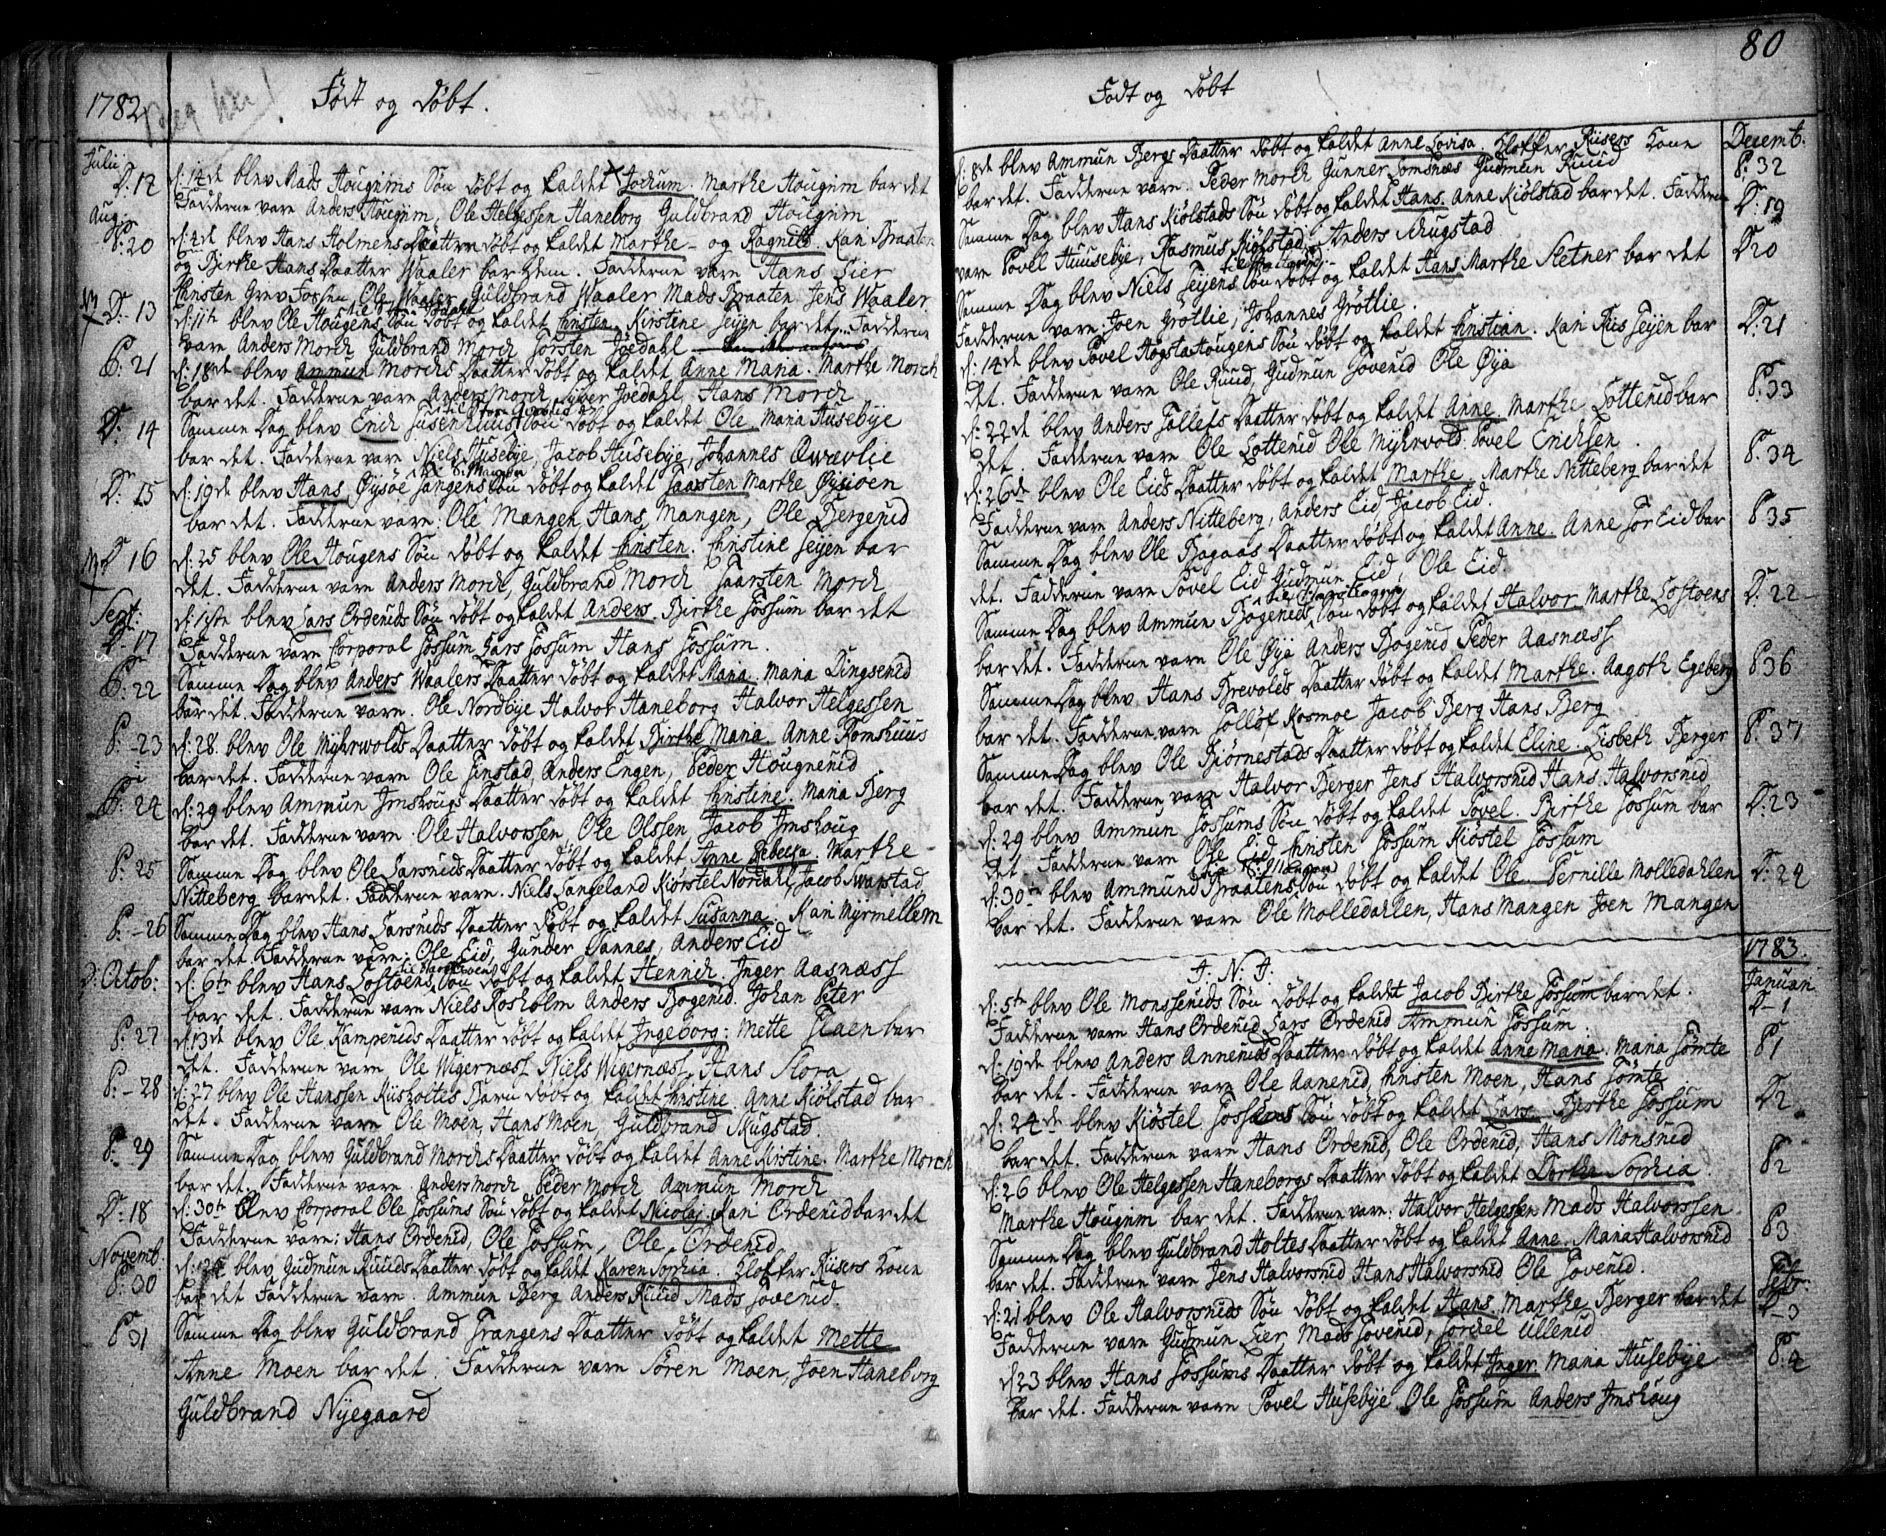 1782
Født og Døbt.
Julii
D: 12 d: 14de blev Mads Hougrims Søn døbt og kaldet Jochum. Marthe Hougrim bar det
Fadderne vare Anders Hougrim, Ole Helgessen Haneborg Guldbrand Hougrim
Aug:
P: 20 d: 4de blev Hans Holmens Daatter døbt og kaldet Marthe - og Ragnild. Kari Braaten
og Birthe Hans Daatter Waaler bar dem. Fadderne vare Hans Lier
Christen Grev Fossen, Ole Waaler, Guldbrand Waaler Mads Braaten Jens Waaler
D: 13 d: 11te blev Ole Hougens Søn døbt og kaldet Christen Kirstine Teien bar det. Fadderne
vare Anders Morch Guldbrand Morch Torsten Joedahl
P: 21 d: 18de blev Ammun Morchs Daatter døbt og kaldet Anne Maria. Marthe Morch
bar det. Fadderne vare Anders Morch, Siver Joedahl, Hans Morch
D: 14 Samme Dag blev Erich Tusenhuus Søn døbt og kaldet Ole. Maria Husebye
bar det. Fadderne vare Niels Husebye, Jacob Husebye, Johannes Qwævlie
D: 15 d: 19de blev Hans Øysøe Tangens Søn døbt og kaldet Taarsten Marthe Øysioen
bar det. Fadderne vare: Ole Mangen Hans Mangen, Ole Bergerud
D 16 d: 25 blev Ole Hougens Søn døbt og kaldet Christen. Christine Teien bar
det. Fadderne vare Anders Morch, Guldbrand Morch Taarsten Morch
Sept:
D: 17 d: 1ste blev Lars Orderuds Søn døbt og kaldet Anders. Birthe Fossum bar det
Fadderne vare Corporal Fossum Lars Fossum Hans Fossum.
P: 22 Samme Dag blev Anders Waalers Daatter døbt og kaldet Maria. Maria Lingserud
bar det. Fadderne vare. Ole Nordbye Halvor Haneborg Halvor Helgessen
P: 23 d: 28. blev Ole Myhrwolds Daatter døbt og kaldet Birthe Maria. Anne Tomshuus
bar det. Fadderne vare Ole Finstad, Anders Engen, Peder Hougnerud
P: 24 d: 29 blev Ammun Imshougs Daatter døbt og kaldet Christine. Maria Berg
bar det. Fadderne vare. Ole Halvorssen Ole Olssen, Jacob Imshoug
P: 25 Samme Dag blev Ole Larsruds Daatter døbt og kaldet Anne Rebecca. Marthe
Nitteberg bar det. Fadderne vare. Niels Langeland Kiørstel Nordahl, Jacob Swarstad
P: 26 Samme Dag blev Hans Larsruds Daatter døbt og kaldet Susanna. Kari Myrmellem
bar det Fadderne vare: Ole Eid, Gunder Sannes, Anders Eid
D: Octob: d: 6te blev Hans Lostoens Søn døbt og kaldet Henrich. Inger Aasnæss
bar det. Fadderne vare Niels Rosholm Anders Bøgerud. Johan Peter
P: 27 d: 13de blev Ole Kamperuds Daatter døbt og kaldet Ingeborg: Mette Flaen bar
det. Fadderne vare Ole Wigernæss Niels Wigernæss, Hans Stora
P: 28 d: 27 blev Ole Hanssen Riisholtes Barn døbt og kaldet Christine Anne Kiølstad bar
det. Fadderne vare Ole Moen, Hans Moen, Guldbrand Skugstad.
P: 29 Samme Dag blev Guldbrand Morchs Daatter døbt og kaldet Anne Kirstine. Marthe Morch
bar det. Fadderne vare. Anders Morch Peder Morch Ammun Morch
D: 18 d: 30te blev Corporal Ole Fossums Søn døbt og kaldet Nicolai. Kari Orderud bar det
Fadderne vare: Hans Orderud, Ole Fossum, Ole Orderud
Novemb.
P: 30 blev Gudmun Ruuds Daatter døbt og kaldet Karen Sophia. Klokker Riisers Kone
bar det Fadderne vare. Ammun Berg Anders Ruud Mads Toverud.
P: 31 Samme Dag blev Guldbrand Trangens Daatter døbt og kaldet Mette
Anne Moen bar det. Fadderne vare Søren Moen, Joen Haneborg
Guldbrand Nyegaard
80
Født og Døbt
Decemb:
d: 8de blev Ammun Bergs Daatter døbt og kaldet Anne Lovisa. Klokker Riisers Kone P: 32
bar det. Fadderne vare. Peder Morch Gunner Tomsnæs Gudmun Ruud
Samme Dag blev Hans Kiølstads Søn døbt og kaldet Hans. Anne Kiølstad bar det. Fadderne D: 19
vare Povel Huusebye, Rasmus Kiølstad, Anders Skugstad
Samme Dag blev Niels Teiens Søn døbt og kaldet Hans Marthe Sletner bar det D 20
Fadderne vare: Joen Grøtlie, Johannes Grøtlie.
d: 14de blev Povel Høgsta Hougens Søn døbt og kaldet Christian. Kari Riis Teien bar D: 21
det. Fadderne vare Ole Ruud, Gudmun Toverud Ole Øya
d: 22de blev Anders Tollefs Daatter døbt og kaldet Anne. Marthe Lotterud bar P: 33
det. Fadderne vare Ole Lotterud Ole Myhrvold. Povel Erichsen
d: 26de blev Ole Eids Daatter døbt og kaldet Marthe. Marthe Nitteberg bar det P: 34
Fadderne vare Anders Nitteberg, Anders Eid Jacob Eid.
Samme Dag blev Ole Bagaas Daatter døbt og kaldet Anne. Anne Tor Eid bar P 35
det. Fadderne vare Povel Eid Gudmun Eid, Ole Eid.
Samme Dag blev Ammun Bøgeruds Søn døbt og kaldet Halvor Marthe Lostoens D: 22
bar det. Fadderne vare Ole Øya Anders Bøgerud Peder Aasnæss
Samme Dag blev Hans Brevolds Daatter døbt og kaldet Marthe. Aagoth Egeberg P 36
bar det. Fadderne vare Tolløf Kosmoe Jacob Berg Hans Berg
Samme Dag blev Ole Biørnestads Daatter døbt og kaldet Eline. Lisbeth Berger P: 37
bar det. Fadderne vare Halvor Berger Jens Halvorsrud Hans Halvorsrud
d: 29 blev Ammun Fossums Søn døbt og kaldet Povel Birthe Fossum bar D: 23
det. Fadderne vare Ole Eid Christen Fossum Kiøstel Fossum
d: 30te blev Ammund Braatens Søn døbt og kaldet Ole. Pernille Molledahlen D: 24
bar det. Fadderne vare Ole Molledahlen, Hans Mangen Joen Mangen
1783.
J. N. J.
Januari
d: 5te blev Ole Monsseruds Søn døbt og kaldet Jacob Birthe Fossum bar det. D 1
Fadderne vare Hans Orderud Lars Orderud Ammun Fossum
d: 19de blev Anders Anneruds Daatter døbt og kaldet Anne Maria. Maria Tomte P 1
bar det. Fadderne vare Ole Aanerud, Christen Moen, Hans Tomte
d: 24de blev Kiøstel Fossums Søn døbt og kaldet Lars Birthe Fossum D 2
bar det. Fadderne vare Hans Orderud, Ole Orderud, Hans Monsrud
d: 26 blev Ole Helgessen Haneborgs Daatter døbt og kaldet Dorthe Sophia P 2
Marthe Hougrim bar det. Fadderne vare: Halvor Helgessen Mads Halvorssen
Samme Dag blev Guldbrand Holtes Daatter døbt og kaldet Anne. Maria Halvorsrud P 3
bar det. Fadderne vare Jens Halvorsrud Hans Halvorsrud Ole Toverud.
Febr:
d: 21 blev Ole Halvorsruds Søn døbt og kaldet Hans Marthe Berger bar det D-3
Fadderne vare Gudmun Lier Mads Toverud, Torkel Ullerud
d 23 blev Hans Fossums Daatter døbt og kaldet Inger Maria Husebye P: 4
bar det. Fadderne vare Povel Husebye Ole Fossum Anders Imshoug